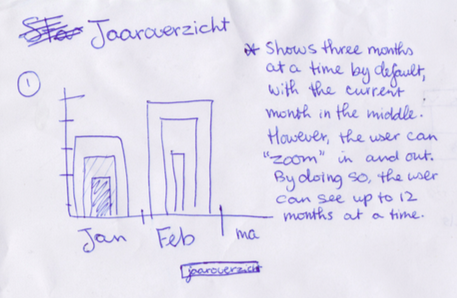 Jaaroverzicht
* Shows three months
at a time by default,
with the current
month in the middle.
However, the user can
"zoom" in and out.
By doing so, the user
can see up to 12
months at a time.
1
Jan Feb ma
jaaroverzicht